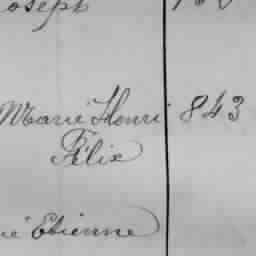 oseph
Marie Henri 843
Félix
ie Etienne